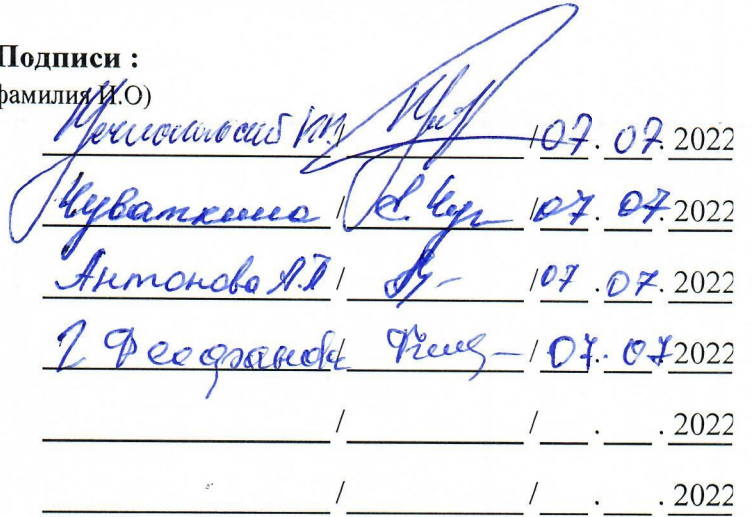 Подписи :
фамилия И.О)
/ / 07. 07. 2022
Чуваткина / С. Чув / 07. 07. 2022
Антонова А.П / / 07. 07. 2022
Г Феофанова / / 07. 07 2022
/ / . . 2022
/ / . . 2022